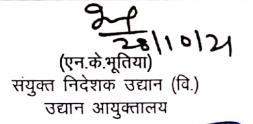 28/10/21
(एन.के.भूतिया)
संयुक्त निदेशक उद्यान (वि.)
उद्यान आयुक्तालय